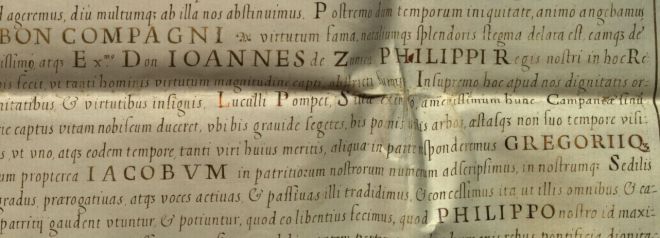 d ageremus, diù multumq; ab illa nos abstinuimus. Postremo dum temporum iniquitate, animo angebamus
BON COMPAGNI virtutum fama, natalium q; splendoris stegma delata est, eamq; de
issimo, atq; Ex.mo Don IOANNES de Zunica PHILIPPI Regis nostri in hoc Re
bis fecit, vt tanti hominis virtutum magnitudine capti, Insupremo hoc apud nos dignitatis or-
nitatibus, & virtutibus insignis, Lucalli Pompei, Silla extincto, amenissimum hunc Campaniæ sinu
re captus vitam nobiscum duceret, vbi bis grauide segetes, bis pomis arbos, æstasq; non suo tempore visi-
s, vt vno, atq; eodem tempore, tanti viri huius meritis, aliqua in parte responderemus GREGORIIQ;
um propterea IACOBVM in patritiorum nostrorum numerum adscripsimus, in nostrumq; Sedilis
gradus, prærogatiuas, atq; voces actiuas, & passiuas illi tradidimus, & concessimus ita ut illis omnibus & ca-
patritij gaudent vtuntur, & potiuntur, quod eo libentius fecimus, quod PHILIPPO nostro id maxi-
rebus pontificia dignita